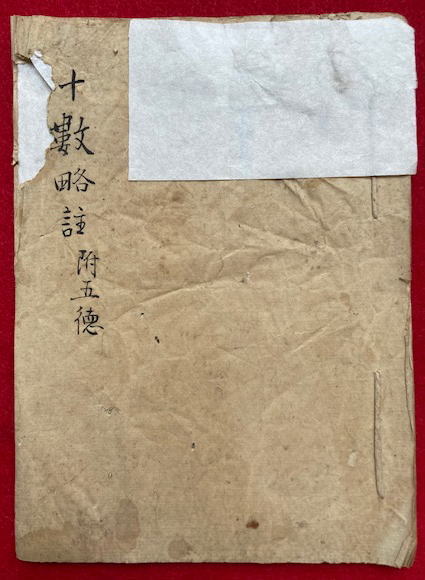 十數略註 附五德